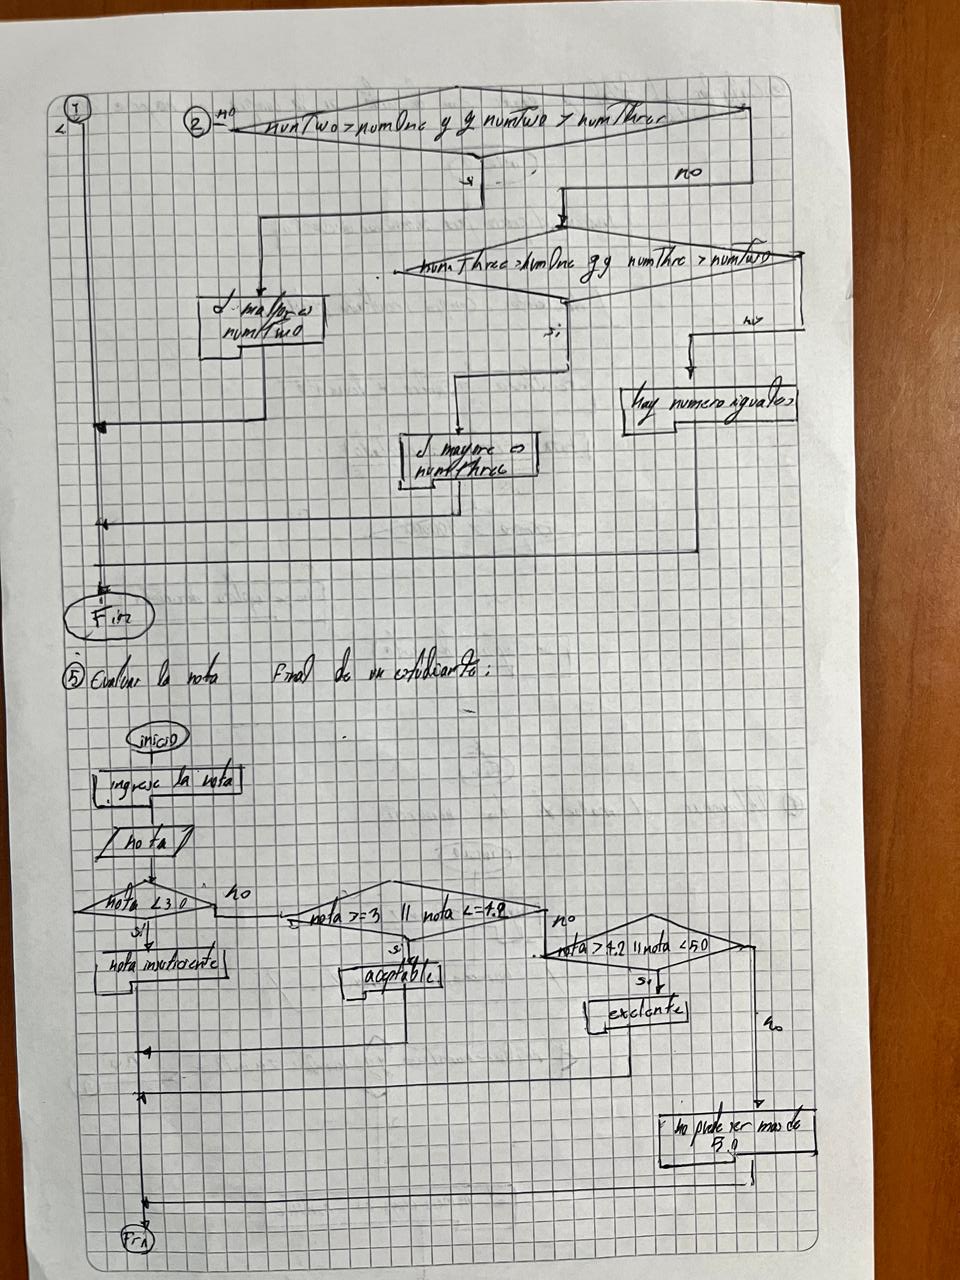 1
2 no numTwo > numOne y y numTwo > numThree
si
no
numThree > numOne y y numThre > numTwo
el mayor es
numTwo
si
no
hay numero iguales
el mayore es
numthree
Fin
5 Evaluar la nota Final de un estudiante:
inicio
ingrese la nota
nota
nota < 3.0
no
nota >= 3 || nota <= 4.2
no
nota > 4.2 || nota < 5.0
si
nota insuficiente
si
aceptable
si
exelente
no
no puede ser mas de
5.0
Fin